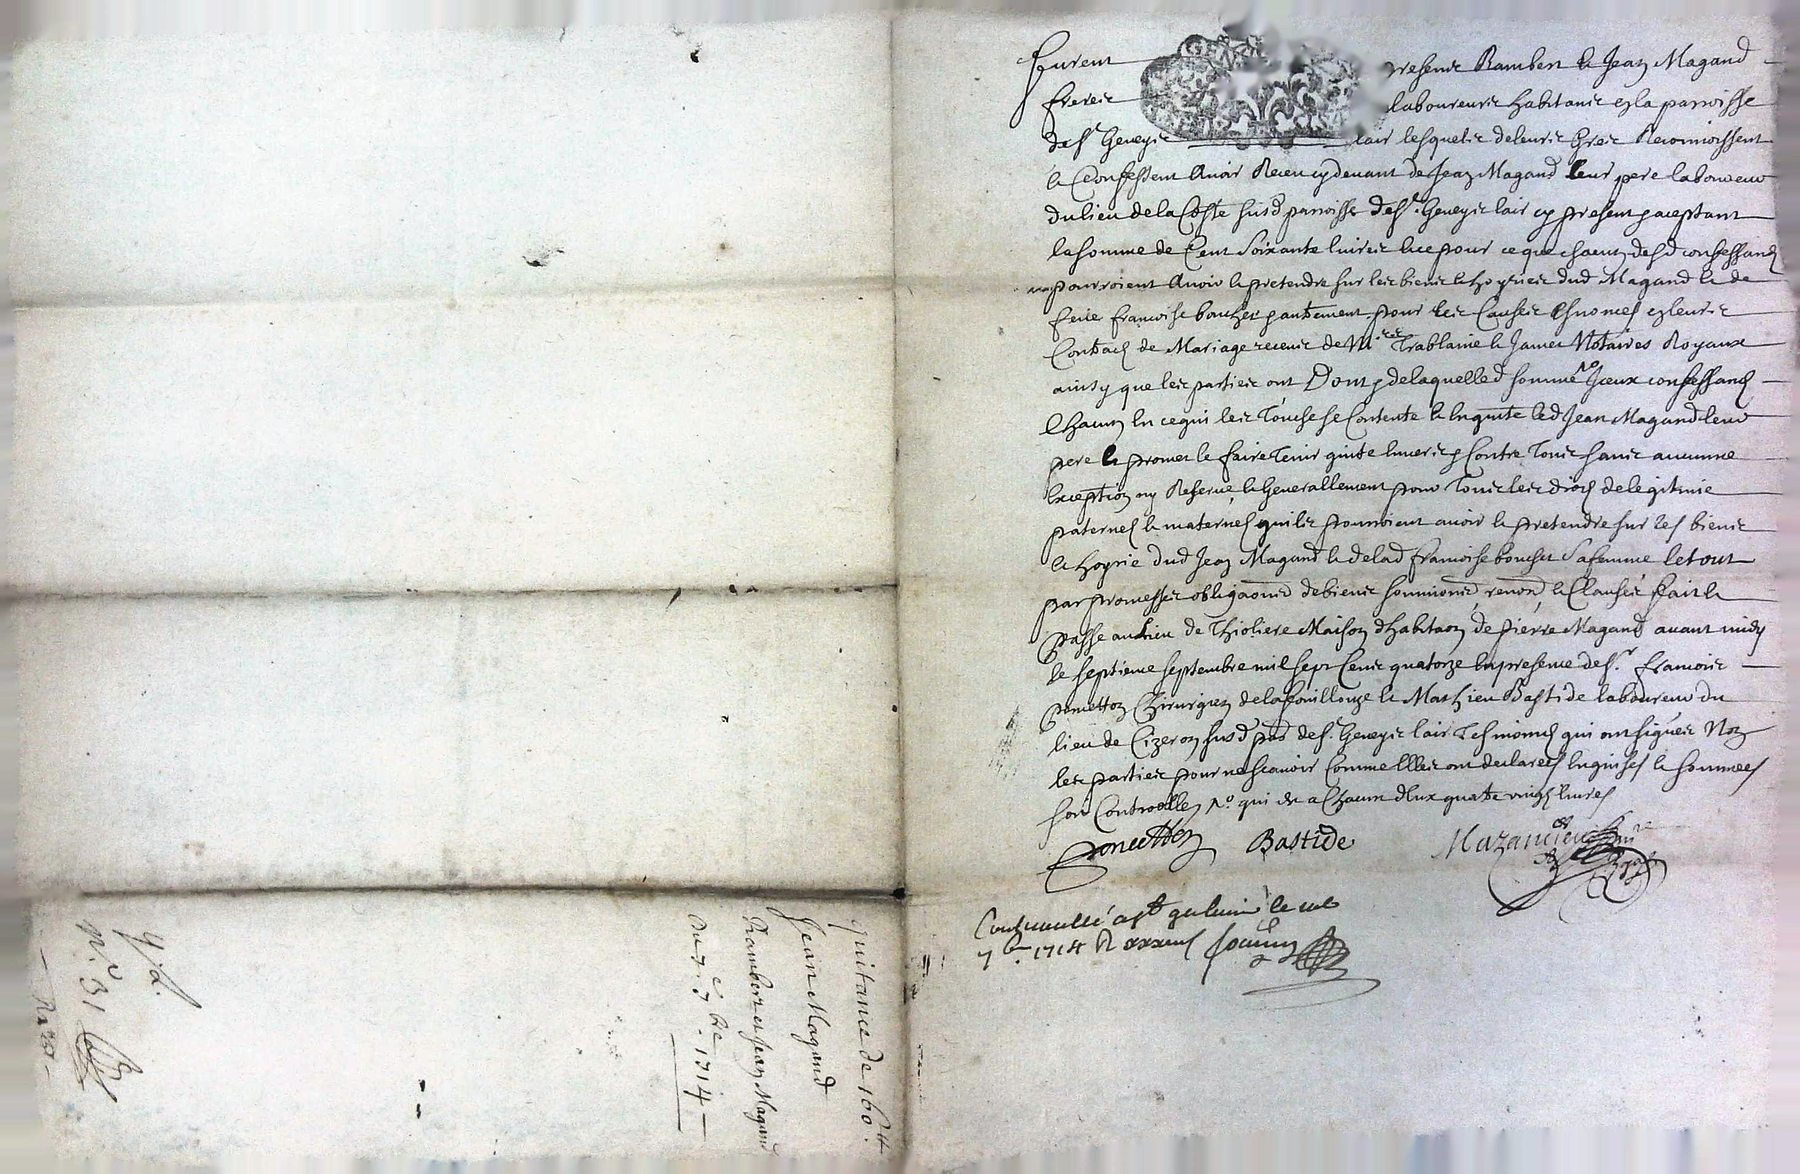 furent presens Rambert & Jean Magand
freres laboureurs habitans en la parroisse
de St Geneys lair lesquels de leurs gres Reconnoissent
& Confessent Avoir Receu cy devant de Jean Magand leur pere laboureur
du lieu de la Coste susd parroisse de St. Geneys lair cy present acceptant
la somme de Cent Soixante livres & ce pour ce que chacun desd confessants
pourroient Avoir & pretendre sur les biens & hoyries dud Magand & de
feue francoise boucher pour les Causes en leurs
Contracts de Mariage receus de Mres Trablaine & Jamet Notaires Royaux
ainsy que les parties ont Dont & de laquelle d somme Iceux confessants
Chacun en ce qui les Touche se Contente & en quitte led Jean Magand leur
pere & promet le faire Tenir quitte envers & Contre Tous sans aucunne
exception ny Reserve & Generallement pour Tous les droits de legitime
paternels & maternels quils pourroient avoir & pretendre sur les biens
& hoyrie dud Jean Magand & de lad francoise boucher sa femme le tout
par promesses obligaons de biens soumions renons & Clauses fait &
passe au Lieu de Thioliere Maison d'habitaon de pierre Magand avant midy
le septieme septembre mil sept Cens quatorze en presence de Sr. francois
ponetton Chirurgien de la fouillouze & Mathieu Bastide laboureur du
lieu de Cizeron susd parr de St. Geneys lair Tesmoins qui ont signés Non
les parties pour ne scavoir Comme Elles ont declarees Enquises & sommees
soit Controollé qui est a Chacun d'Eux quatre vingts livres
ponetton Bastide Mazancieu
Controllé a St galmier le
7bre. 1714 R
quitance de 160 tt
Jean Magand
Rambert et Jean Magand
Du 7e 7bre 1714
n.o 31